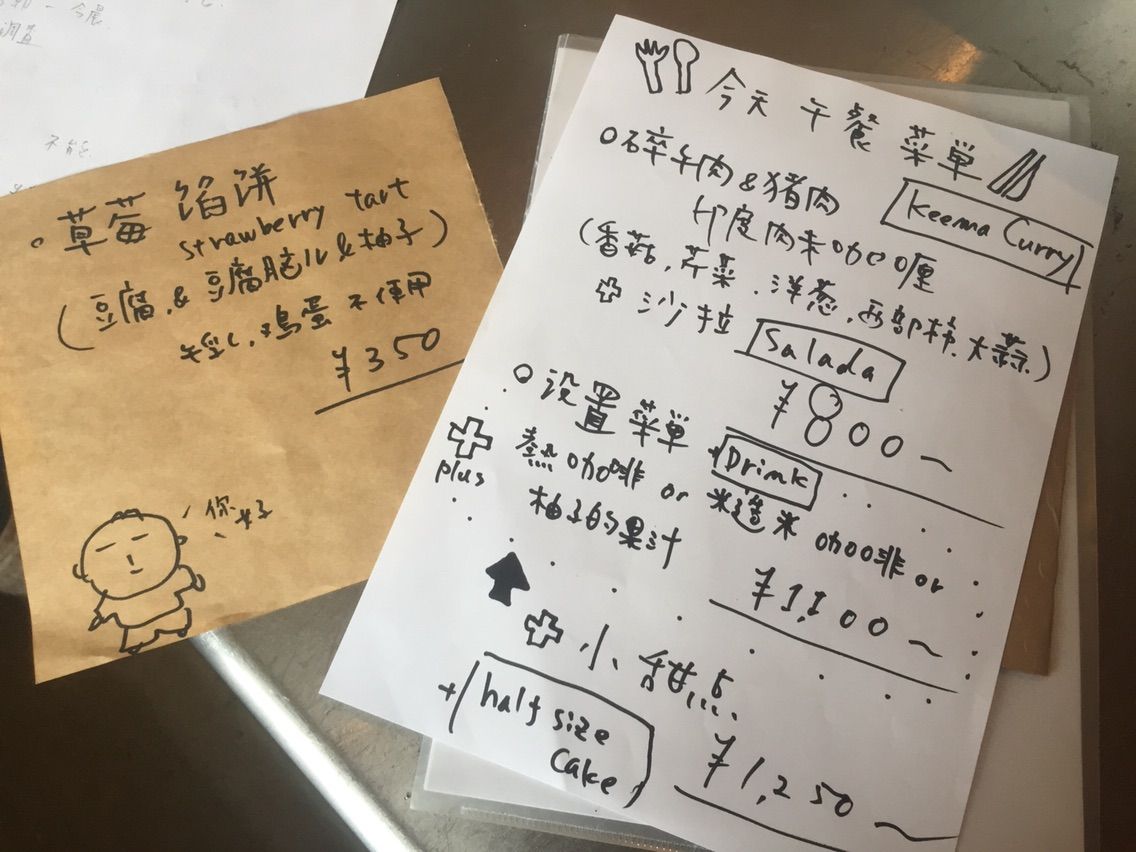 草莓馅饼
strawberry tart
(豆腐,&豆腐脑儿&柚子)
牛乳,鸡蛋不使用
¥350
你好
不能
今天午餐菜单
碎牛肉&猪肉
Keema Curry
印度肉末咖喱
(香菇,芹菜,洋葱,西部柿,大蒜)
+沙拉 Salada
¥800~
设置菜单 +Drink
plus
熱咖啡 or 糙米咖啡 or
柚子的果汁
¥1,100~
+小甜点
+half size
cake
¥1,250~